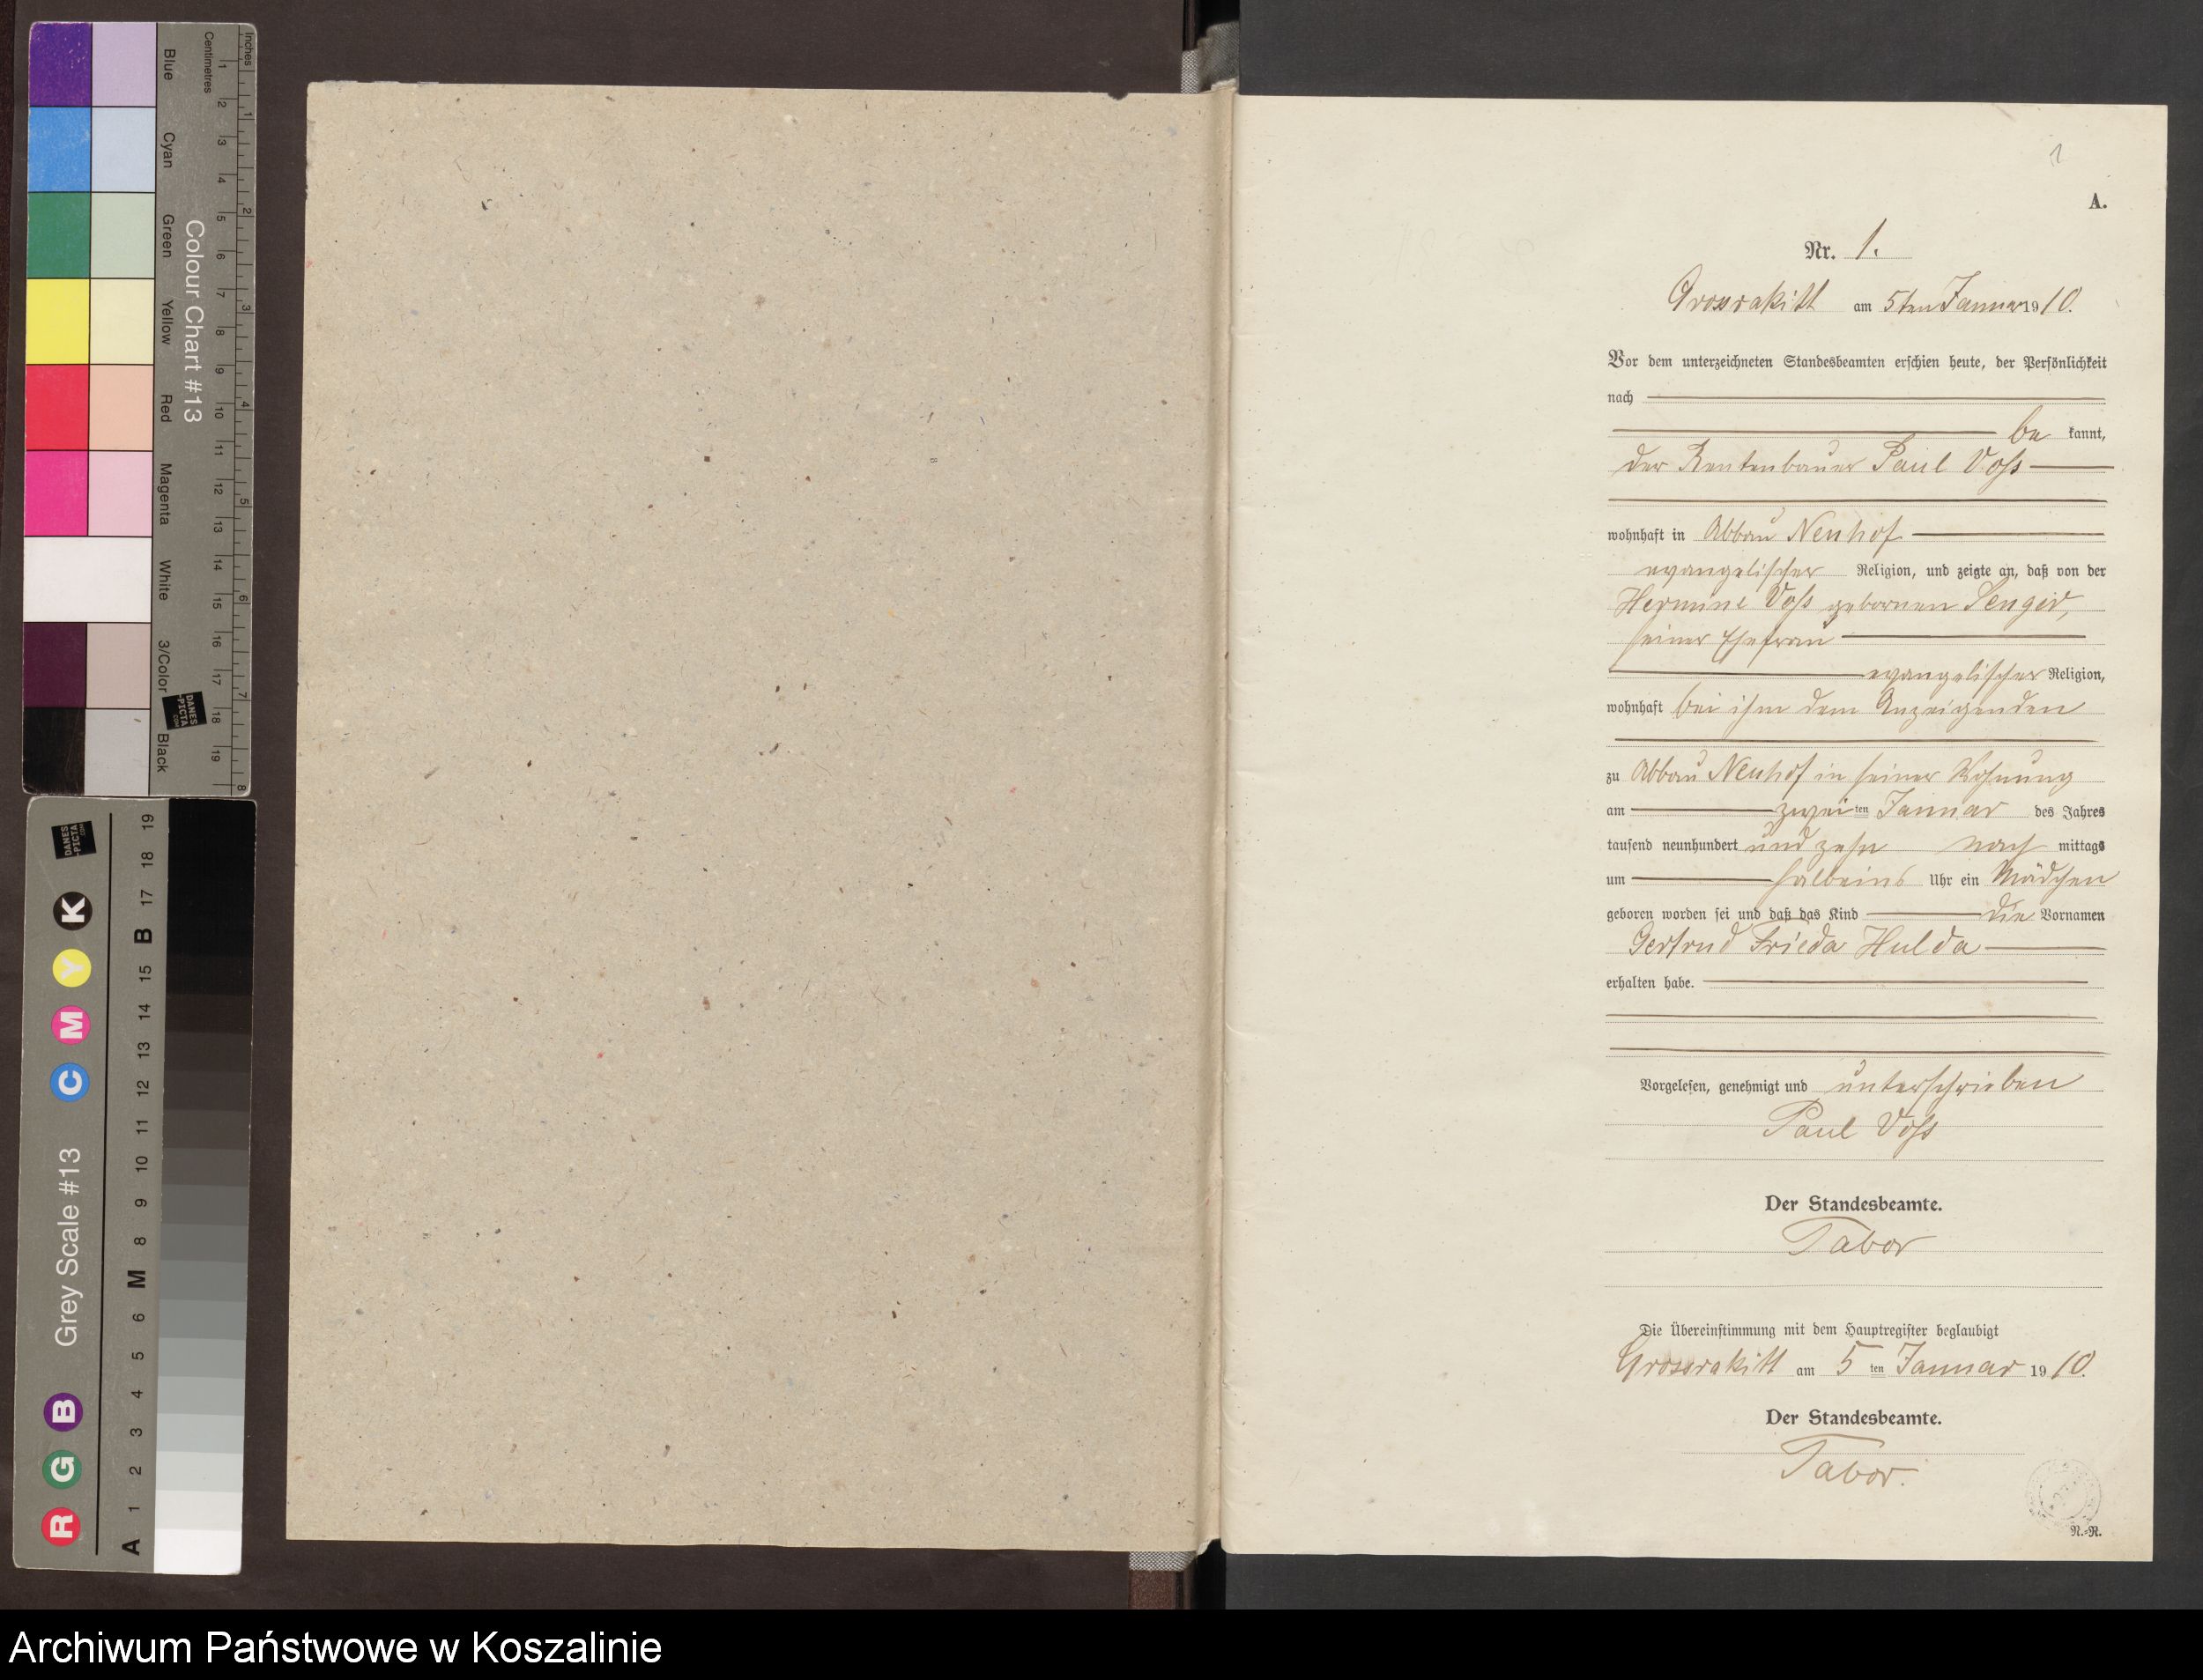 Inches
Centimetres
1 2 3 4 5 6 7 8
1 2 3 4 5 6 7 8 9 10 11 12 13 14 15 16 17 18 19
Colour Chart #13
Blue
Cyan
Green
Yellow
Red
Magenta
White
3/Color
Black
DANES
-PICTA
.COM
Grey Scale #13
R G B C M Y K
A 1 2 3 4 5 6 M 8 9 10 11 12 13 14 15 B 17 18 19
DANES
-PICTA
.COM
1
A.
Nr. 1.
Grossrakitt am 5ten Januar 1910.
Vor dem unterzeichneten Standesbeamten erschien heute, der Persönlichkeit
nach
be kannt,
der Rentenbauer Paul Voss
wohnhaft in Abbau Neuhof
evangelischer Religion, und zeigte an, daß von der
Hermine Voss gebornen Senger,
seiner Ehefrau
evangelischer Religion,
wohnhaft bei ihm dem Anzeigenden
zu Abbau Neuhof in seiner Wohnung
am zwei ten Januar des Jahres
tausend neunhundert und zehn nach mittags
um halbeins Uhr ein Mädchen
geboren worden sei und daß das Kind die Vornamen
Gertrud Frieda Hulda
erhalten habe.
Vorgelesen, genehmigt und unterschrieben
Paul Voss
Der Standesbeamte.
Tabor
Die Übereinstimmung mit dem Hauptregister beglaubigt
Grossrakitt am 5 ten Januar 1910.
Der Standesbeamte.
Tabor.
N.-R.
Archiwum Państwowe w Koszalinie